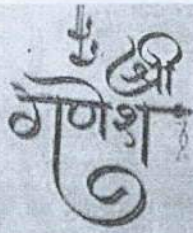 श्री
गणेश